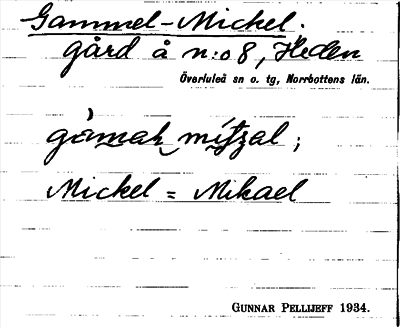 Gammel-Mickel.
gård å n:o 8, Heden
Överluleå sn o. tg, Norrbottens län.
Mickel = Mikael
GUNNAR PELLIJEFF 1934.